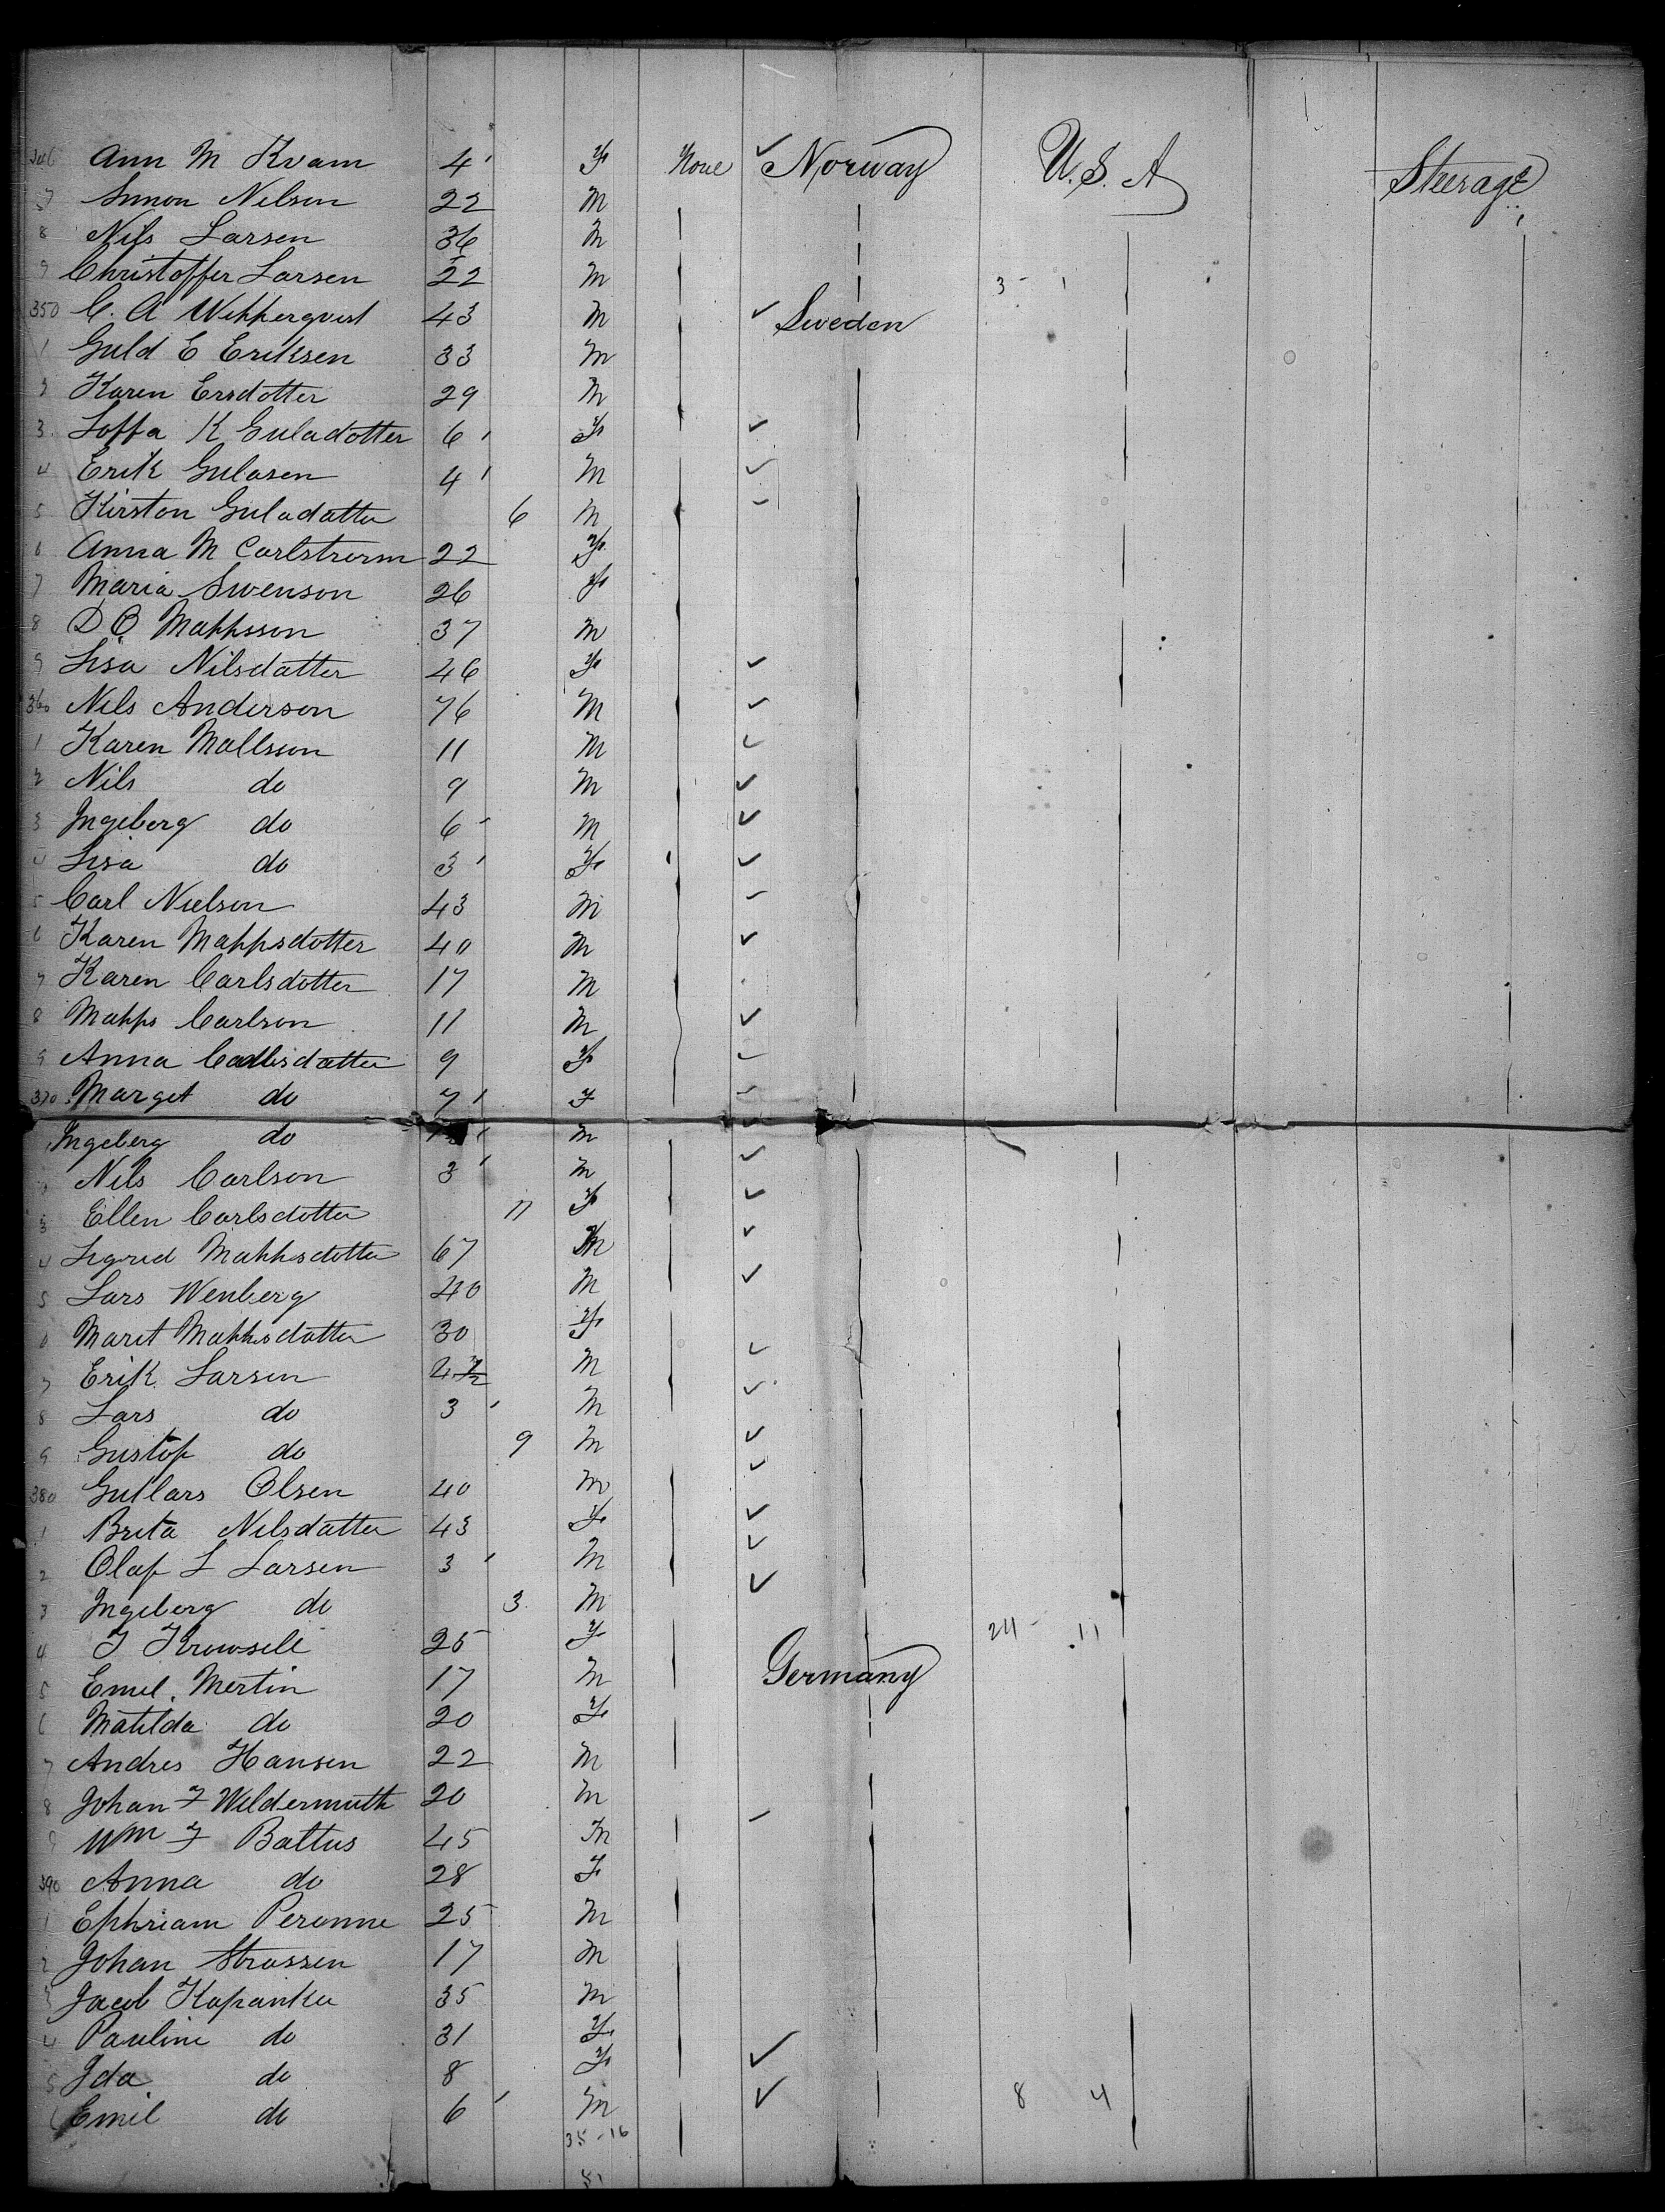 346 Ann M Kvam 4 ' F None ✓ Norway U.S. A Steerage
7 Simon Nelson 22 M
8 Nils Larsen 36 M
9 Christoffer Larsen 22 M 3 - 1
350 C. A 43 M ✓ Sweden
1 Guld E Eriksen 33 M
2 Karen Ersdotter 29 M
3 Loffa K Guladotter 6 ' F ✓
4 Erik Gulasen 4 ' M ✓
5 Kirston Guladatter 6 M ✓
6 Anna M Carlstrorm 22 F
7 Maria Swenson 26 F
8 D O Mahhsson 37 M
9 Lisa Nilsdatter 46 F ✓
360 Nels Anderson 76 M ✓
1 Karen Mallsson 11 M ✓
2 Nils do 9 M ✓
3 Ingeberg do 6 ' M ✓
4 Lisa do 3 ' F ✓
5 Carl Nielson 43 M ✓
6 Karen Mahhsdotter 40 M ✓
7 Karen Carlsdotter 17 M
8 Mahhs Carlson 11 M ✓
9 Anna Carllsdatter 9 F ✓
370 Marget do 7 ' F ✓
Ingeberg do ' M ✓
Nils Carlson 3 ' M ✓
3 Ellen Carlsdotter 11 F ✓
4 Sigrid Mahhsdotter 67 M ✓
5 Lars Wenberg 40 M ✓
6 Marit Mahhsdatter 30 F
7 Erik Larsen 4 1/2 M ✓
8 Lars do 3 ' M ✓
9 Gustof do 9 M ✓
380 Gullars Olsen 40 M ✓
1 Brita Nelsdatter 43 F ✓
2 Olaf L Larsen 3 ' M ✓
3 Ingeberg do 3 M ✓
4 J Krowsell 25 F 24 - 11
5 Emel Mertin 17 M Germany
6 Matilda do 20 F
7 Andres Hansen 22 M
8 Johan F Weldermuth 20 M
9 Wm F Baltus 45 M ✓
390 Anna do 28 F
1 Ephriam Peronne 25 M
2 Johan Strassen 17 M
3 Jacob Kapanka 35 M
4 Pauline do 31 F
5 Ida do 8 F ✓
6 Emil do 6 ' M ✓ 8 4
35-16
51